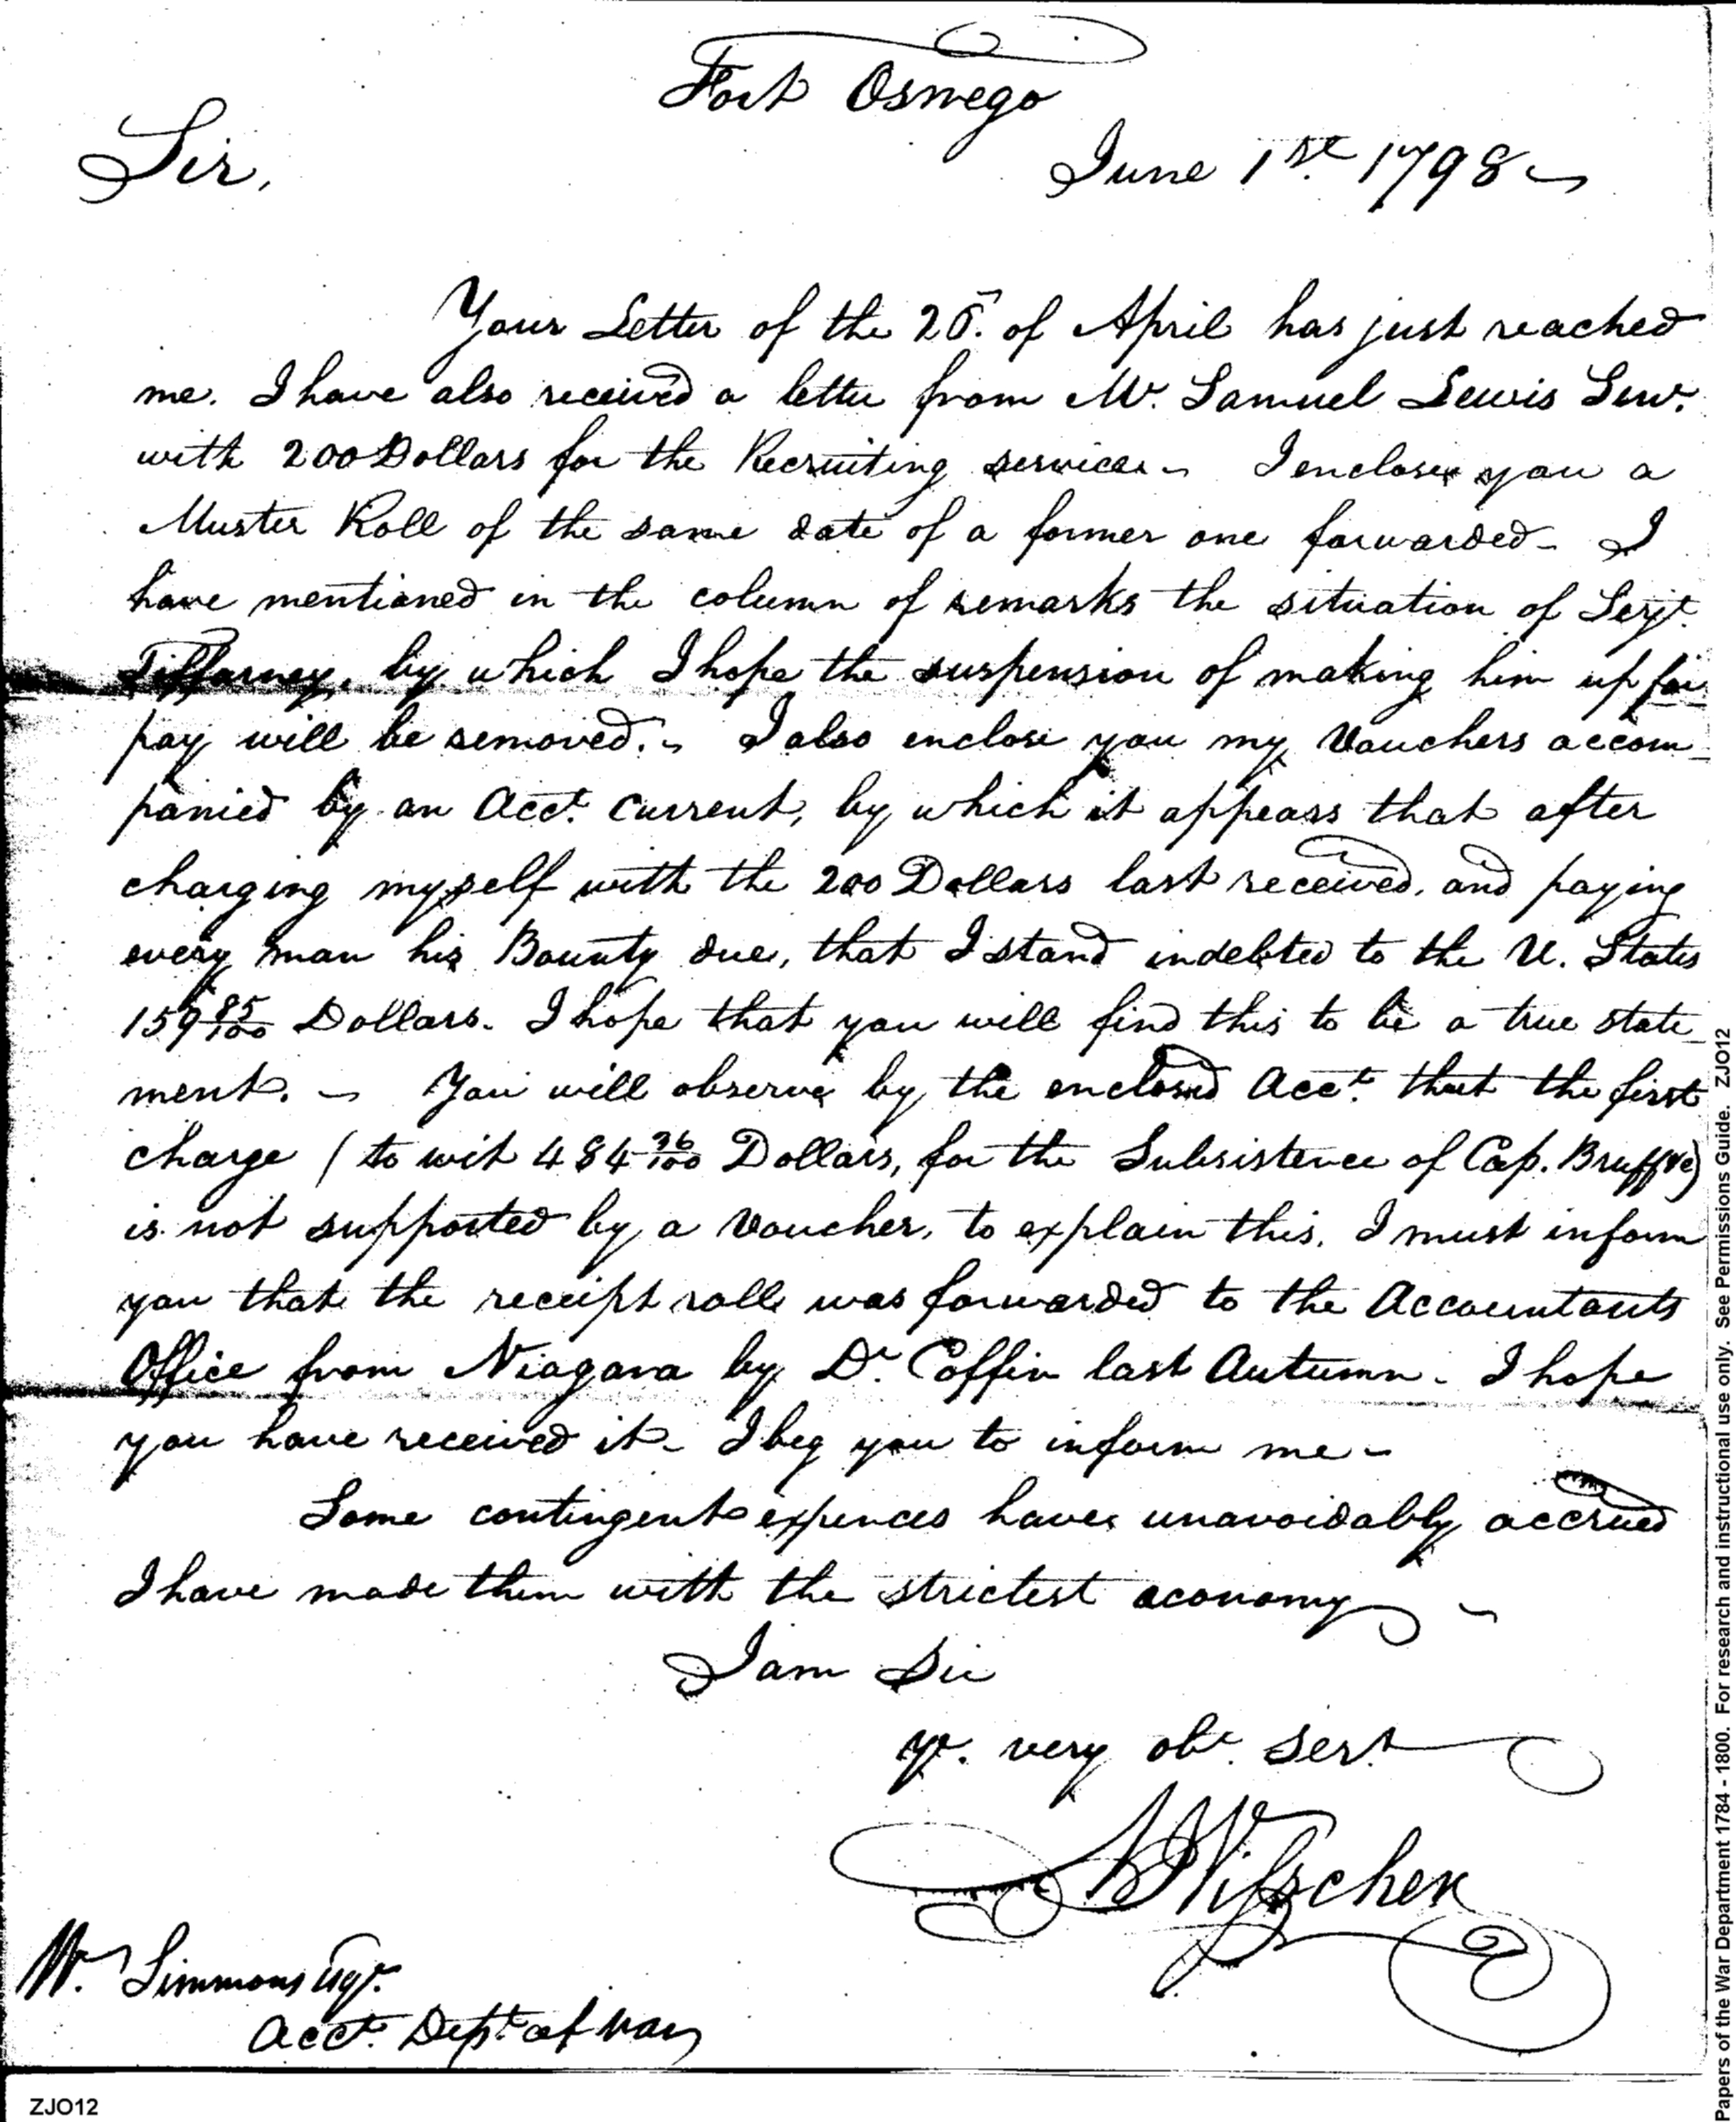 Fort Oswego
Sir,
June 1st. 1798
Your Letter of the 20. of April has just reached
me. I have also received a letter from Mr. Samuel Lewis Senr.
with 200 Dollars for the Recruiting service. I enclose you a
Muster Roll of the same date of a former one forwarded - I
have mentioned in the column of remarks the situation of Serjt.
Tiffarney, by which I hope the suspension of making him up for
pay will be removed. - I also enclose you my Vouchers accom-
panied by an Acct. Current, by which it appears that after
charging myself with the 200 Dollars last received, and paying
every man his Bounty due, that I stand indebted to the U. States
159 85/100 Dollars. I hope that you will find this to be a true state-
ment. - You will observe by the enclosed Acct. that the first
charge (to wit 484 36/100 Dollars, for the Subsistence of Cap. Bruff &c)
is not supported by a Voucher, to explain this, I must inform
you that the receipt roll was forwarded to the Accountants
Office from Niagara by Dr. Coffin last Autumn. I hope
you have received it - I beg you to inform me -
Some contingent expences have unavoidably accrued
I have made them with the strictest aconomy
I am Sir
yr. very obt. Sert
W. Simmons Esqr.
Acct. Dept. of War
ZJO12
Papers of the War Department 1784 - 1800. For research and instructional use only. See Permissions Guide. ZJO12